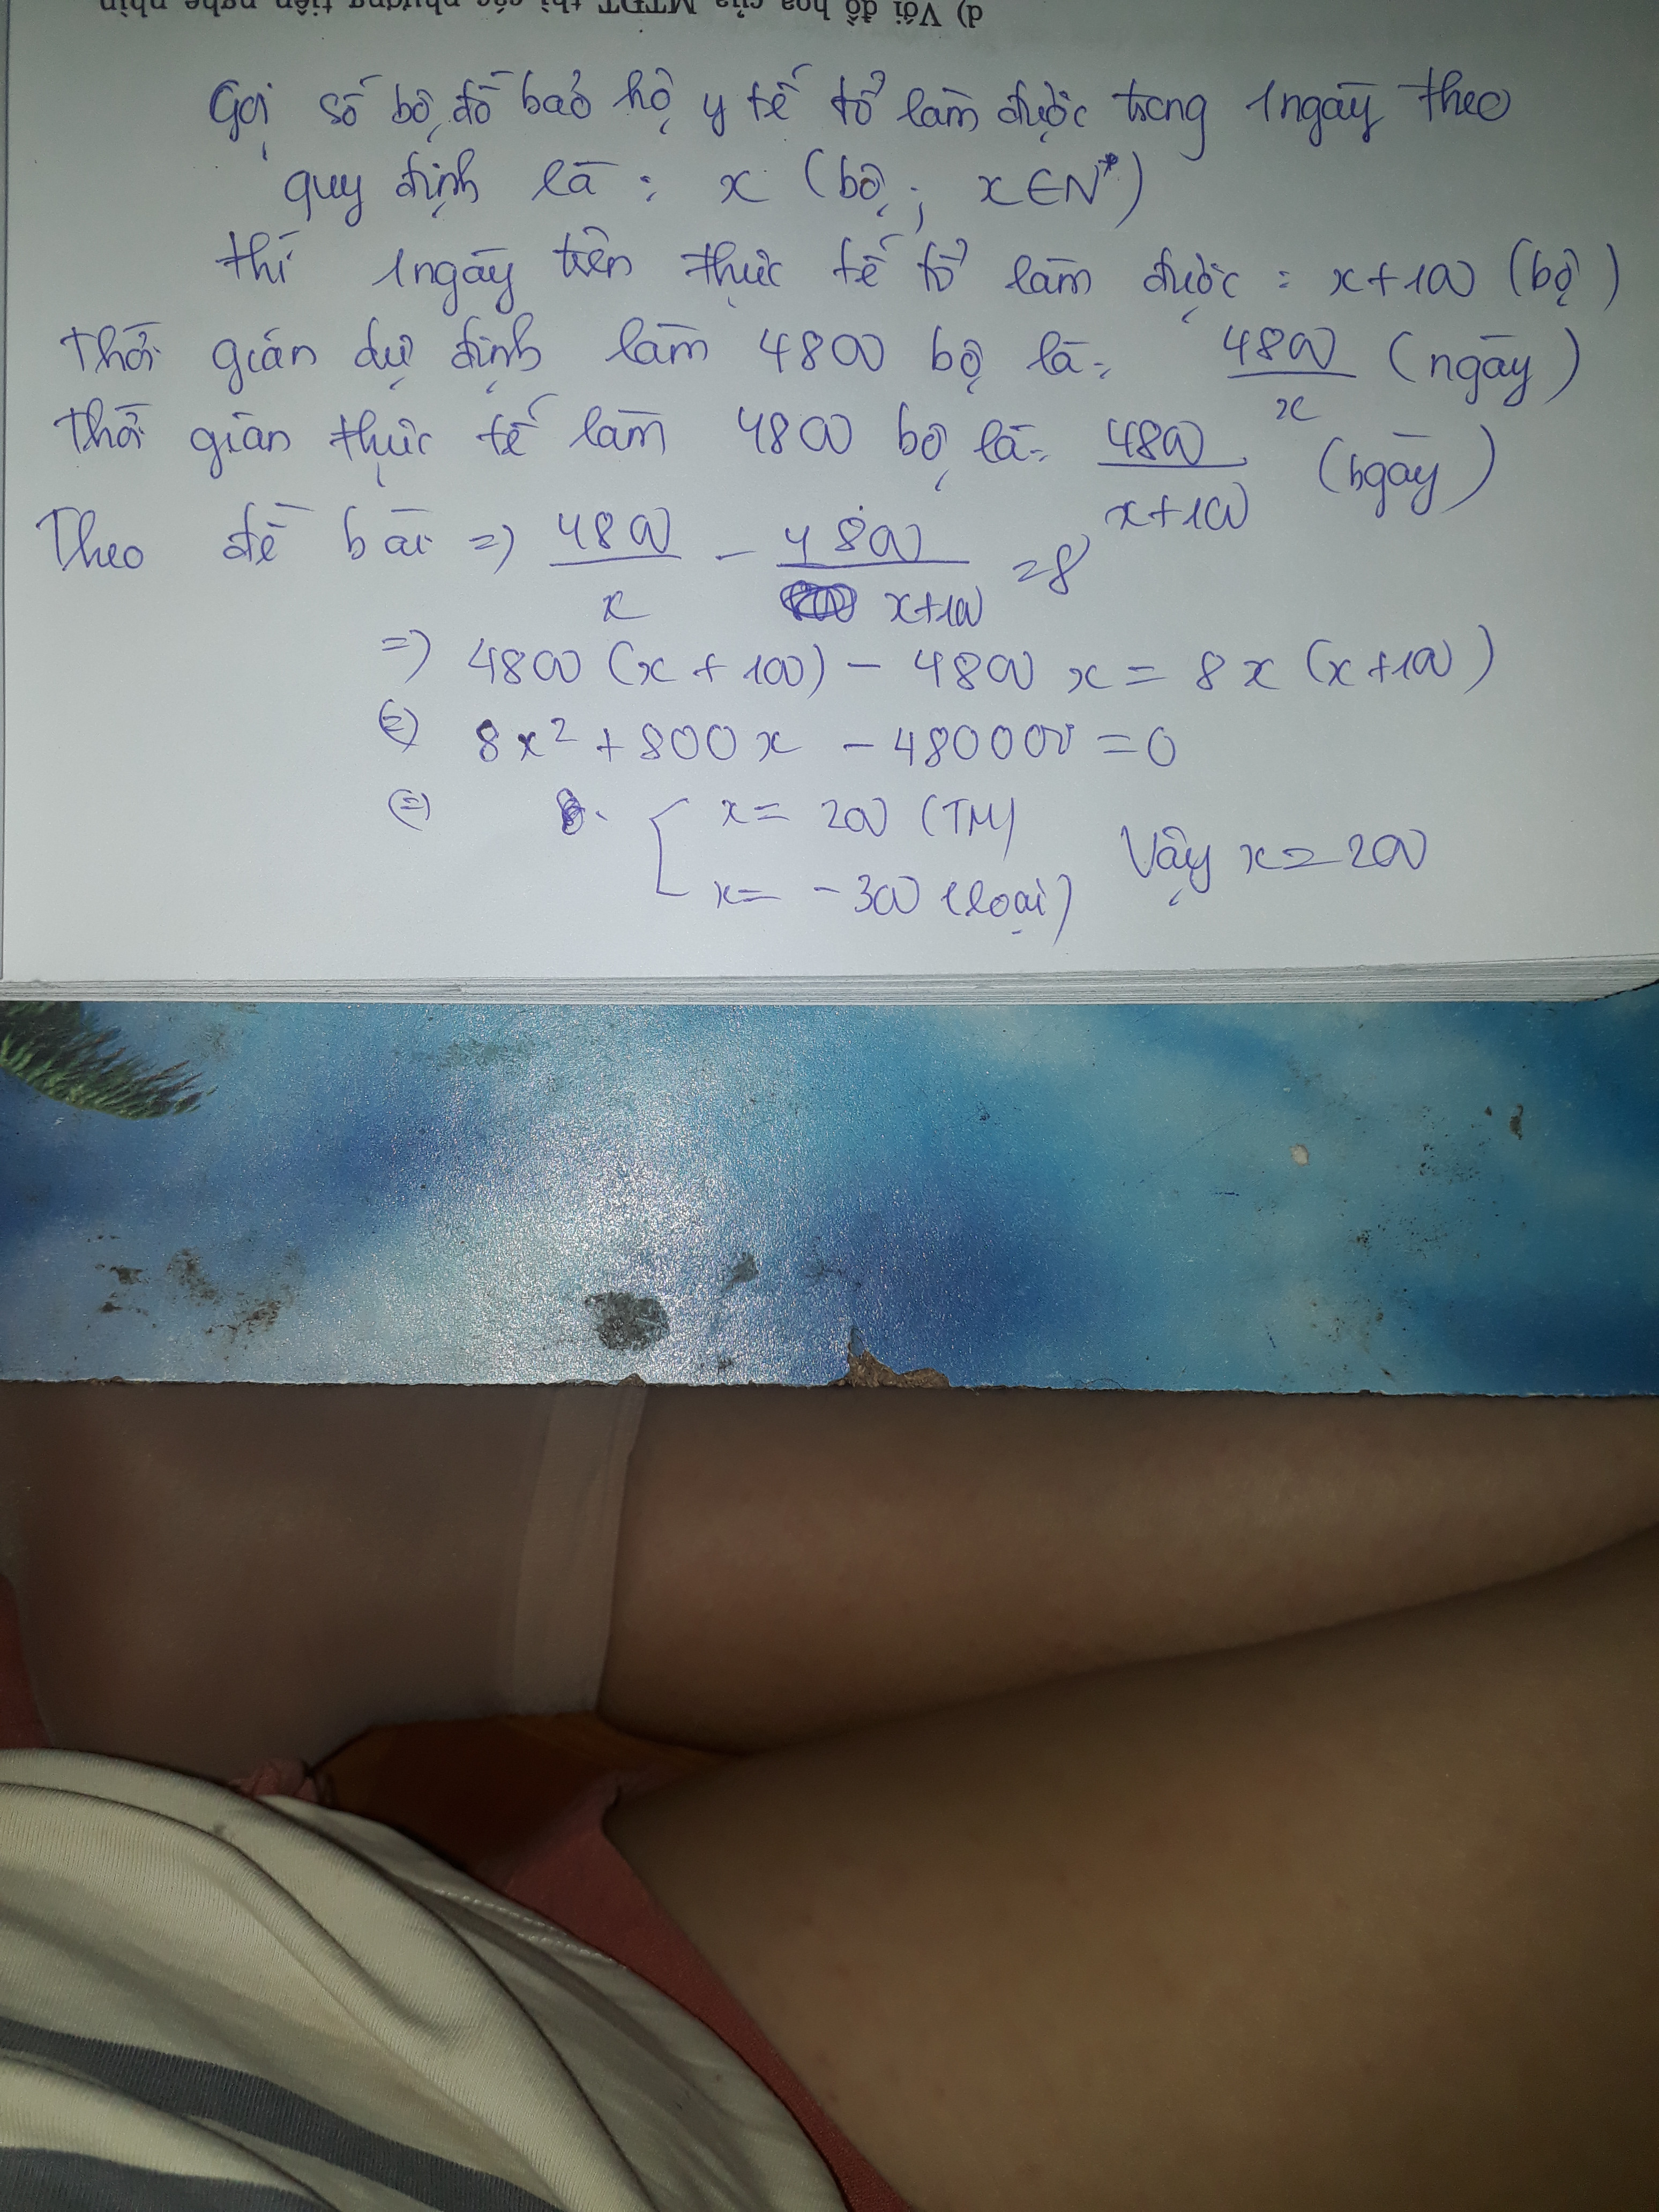 d) Với đồ họa của MTĐT thì các phương tiện nghe nhìn
Gọi số bộ đồ bảo hộ y tế tổ làm được trong 1 ngày theo
quy định là : x (bộ ; x ∈ N*)
thì 1 ngày trên thực tế tổ làm được : x + 100 (bộ)
Thời gian dự định làm 4800 bộ là : 4800/x (ngày)
Thời gian thực tế làm 4800 bộ là : 4800/(x+100) (ngày)
Theo đề bài => 4800/x - 4800/(x+100) = 8
=> 4800 (x + 100) - 4800 x = 8x (x+100)
<=> 8x² + 800x - 480000 = 0
<=> [ x = 200 (TM)
x = -300 (loại) Vậy x = 200